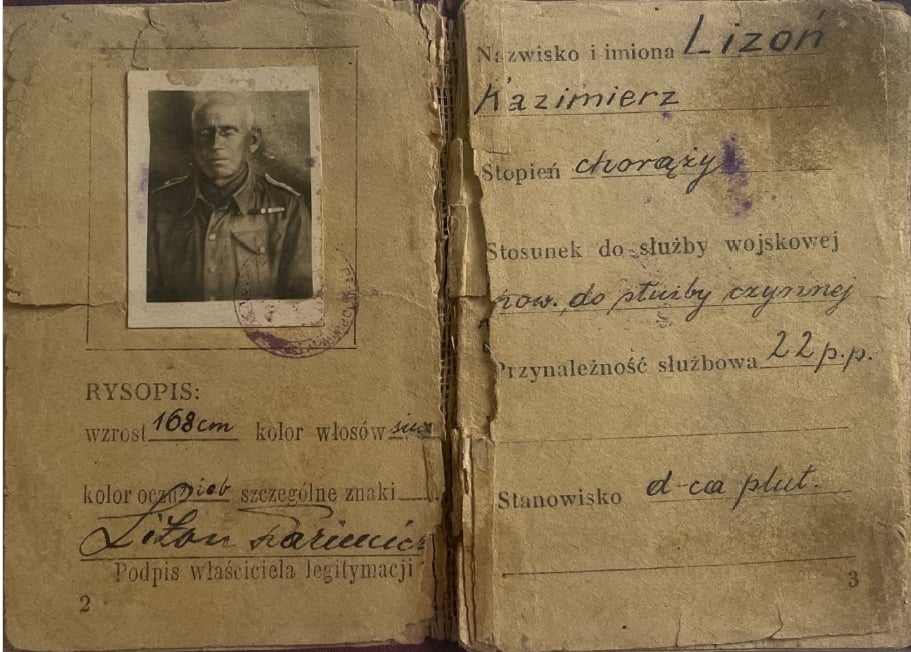 RYSOPIS:
wzrost 168cm kolor włosów siw
kolor oczu nieb szczególne znaki
Liżon Kazimierz
Podpis właściciela legitymacji
2
Nazwisko i imiona Lizoń
Kazimierz
Stopień chorąży
Stosunek do służby wojskowej
pow. do służby czynnej
Przynależność służbowa 22 p.p.
Stanowisko d-ca plut.
3